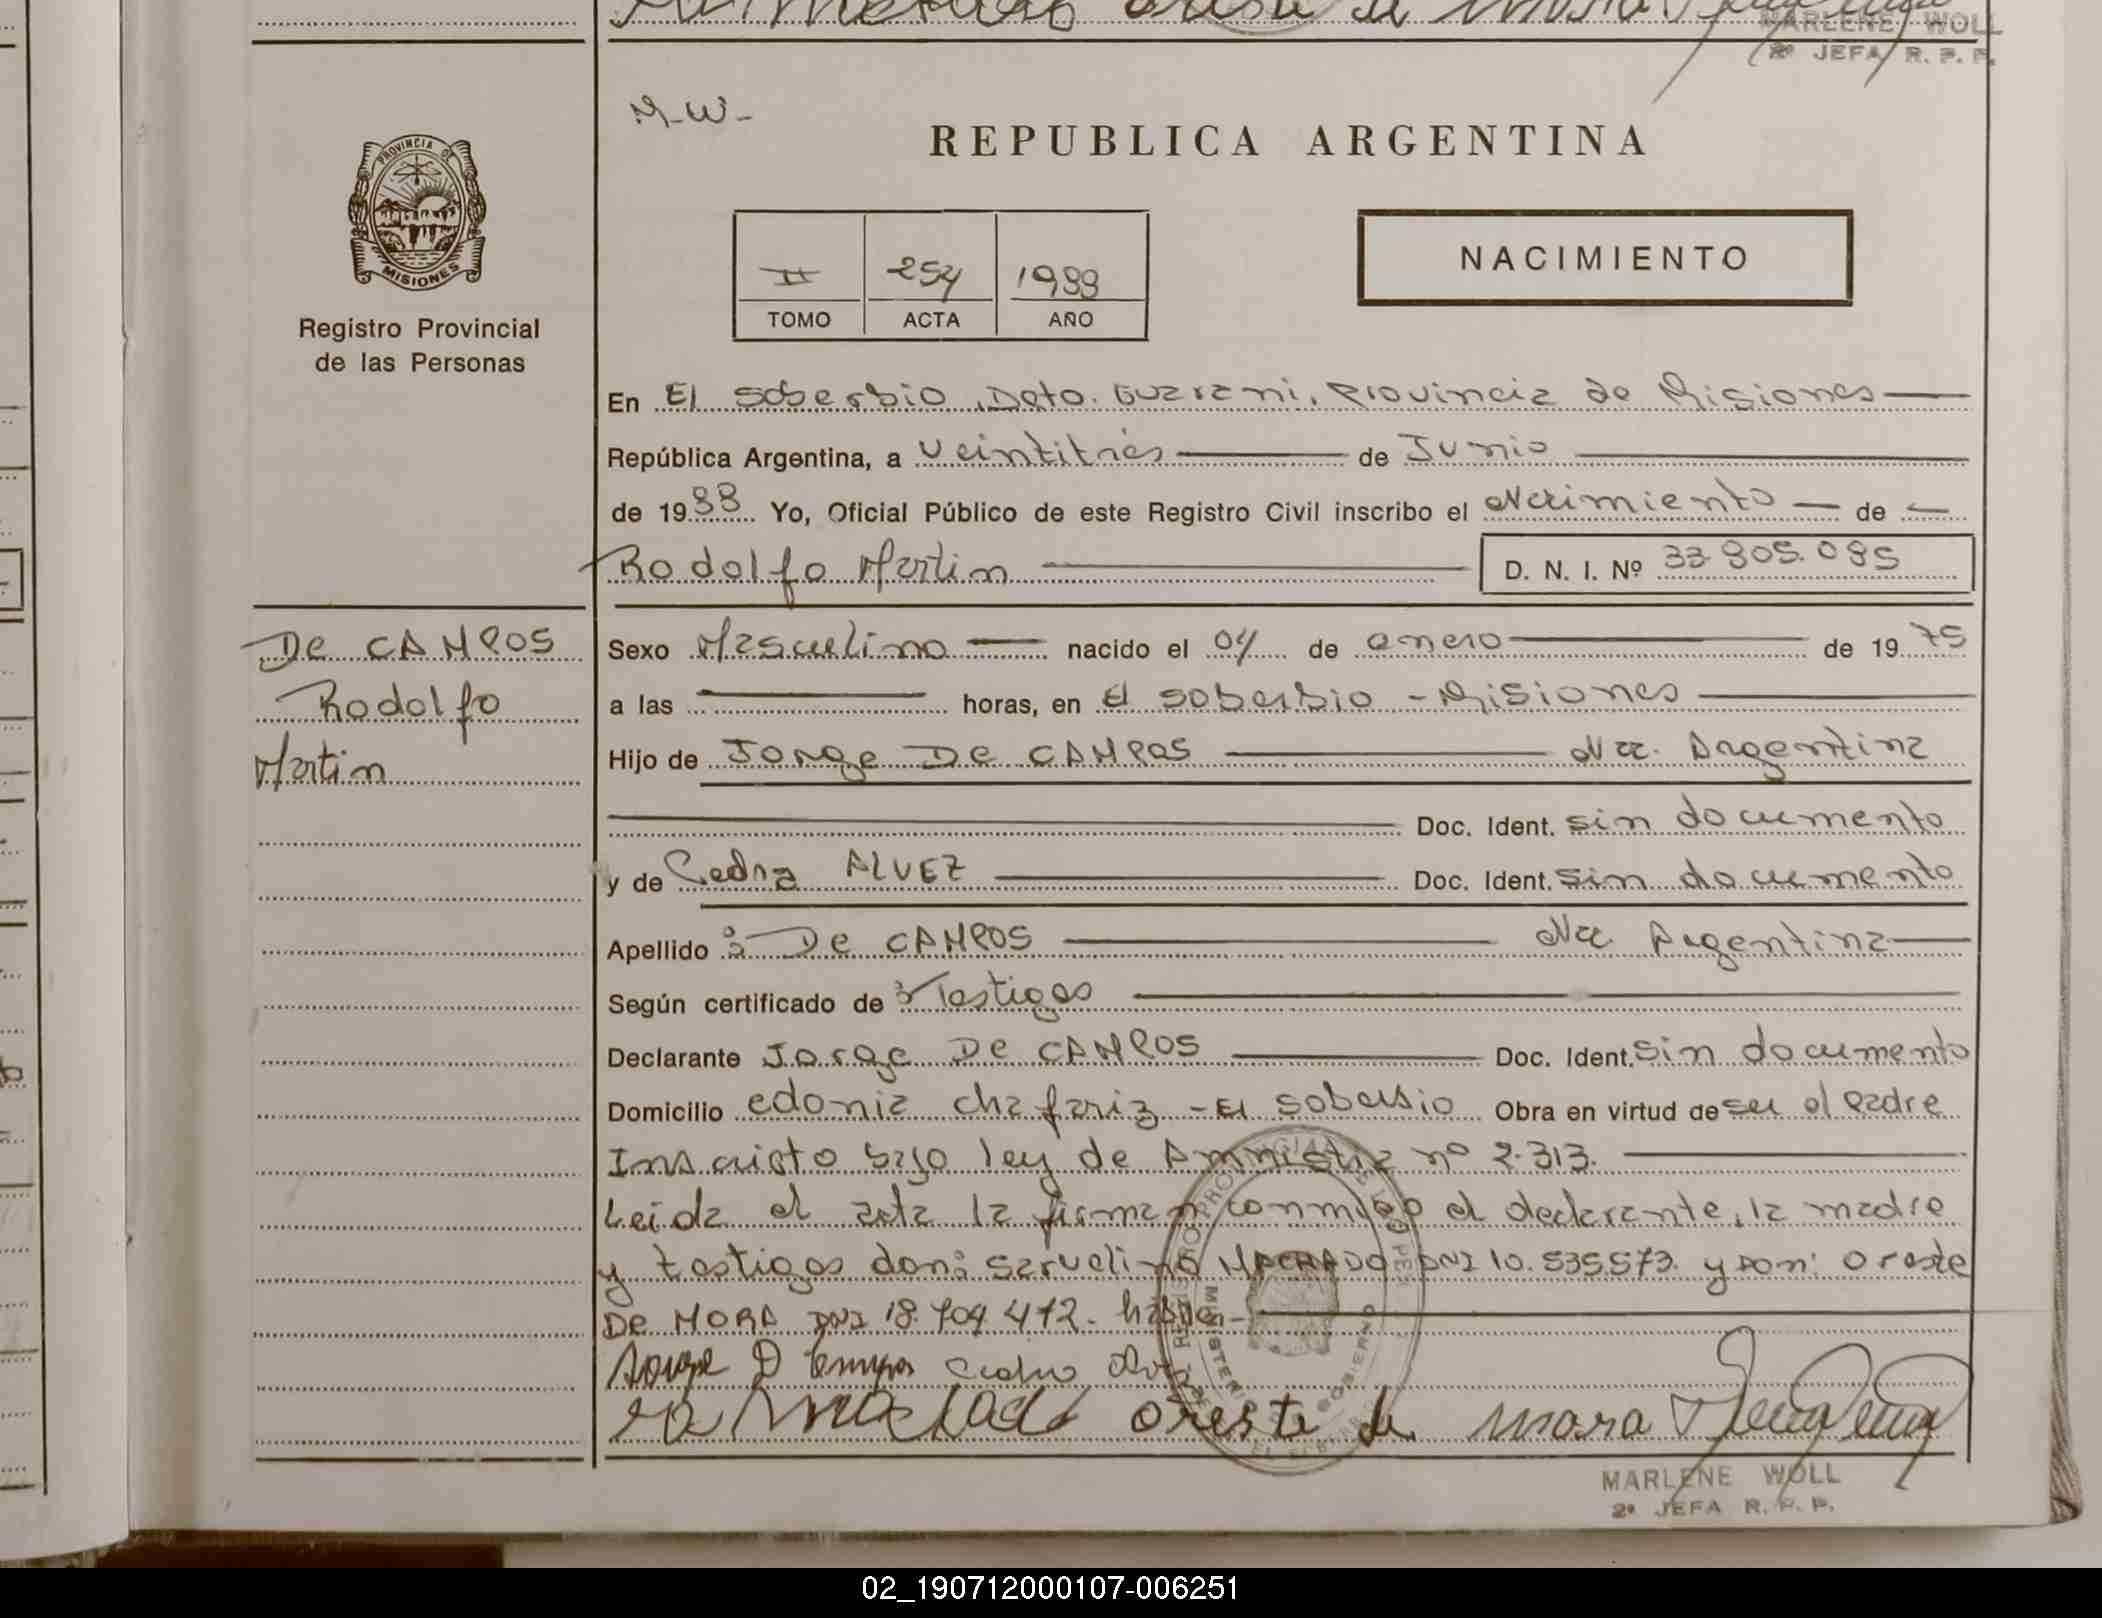 MARLENE WOLL
2º JEFA R. P. P.
M-W-
REPUBLICA ARGENTINA
PROVINCIA DE
MISIONES
Registro Provincial
de las Personas
II 254 1988
TOMO ACTA AÑO
NACIMIENTO
En El Soberbio, Dpto. Guarani, Provincia de Misiones
República Argentina, a veintitrés de Junio
de 1988 Yo, Oficial Público de este Registro Civil inscribo el Nacimiento de
Rodolfo Martin D. N. I. Nº 33.905.095
De CAMPOS
Rodolfo
Martin
Sexo Masculino nacido el 04 de enero de 1975
a las horas, en El Soberbio - Misiones
Hijo de Jorge De CAMPOS Nac. Argentina
Doc. Ident. sin documento
y de ALVEZ Doc. Ident. sin documento
Apellido : De CAMPOS Nac. Argentina
Según certificado de : Testigos
Declarante Jorge De CAMPOS Doc. Ident. sin documento
Domicilio colonia chafariz - El Soberbio Obra en virtud de ser el Padre
Inscripto bajo ley de Amnistia nº 2.313.
Leida el acta la firman conmigo el declarante, la madre
y testigos don: Servelino MACHADO DNI 10.535.573. y Don: Oreste
De MORA DNI 18.704.472. hábiles-
oreste de mora
MARLENE WOLL
2º JEFA R. P. P.
02_190712000107-006251